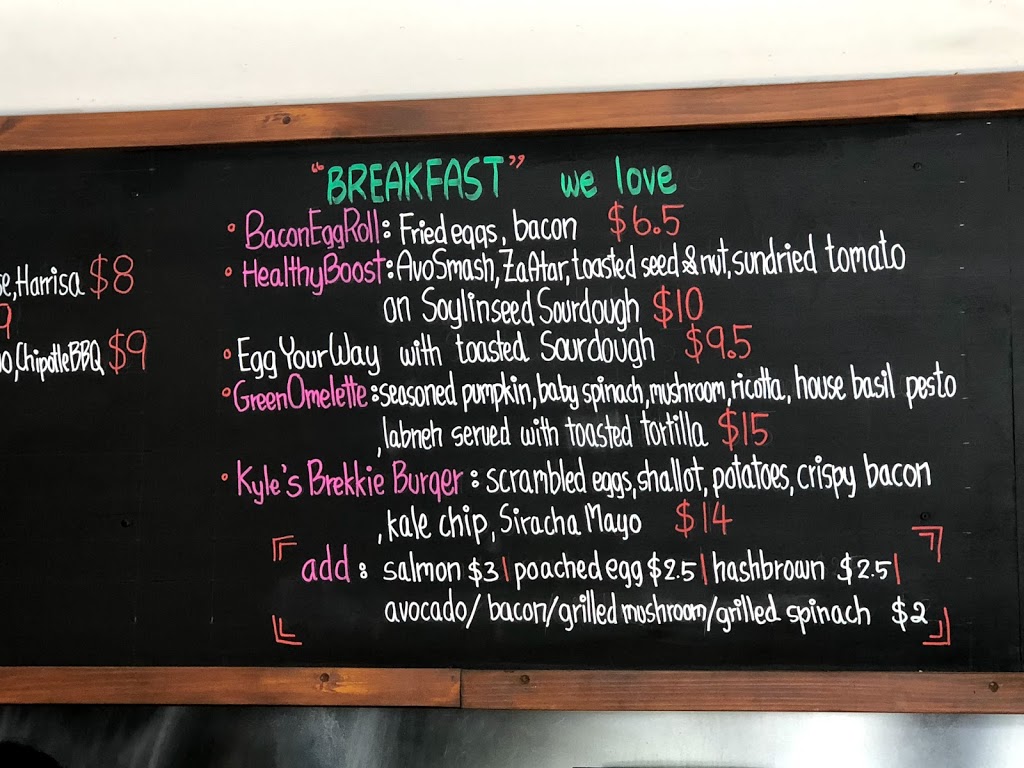 "BREAKFAST" we love
• BaconEggRoll: Fried eggs, bacon $6.5
• HealthyBoost: AvoSmash, ZaAtar, toasted seed & nut, sundried tomato
on Soylinseed Sourdough $10
• Egg Your Way with toasted Sourdough $9.5
• GreenOmelette: seasoned pumpkin, baby spinach, mushroom, ricotta, house basil pesto
, labneh served with toasted tortilla $15
• Kyle's Brekkie Burger: scrambled eggs, shallot, potatoes, crispy bacon
, kale chip, Siracha Mayo $14
add: salmon $3 | poached egg $2.5 | hashbrown $2.5 |
avocado/ bacon/ grilled mushroom/ grilled spinach $2
, Harrisa $8
9
, Chipotle BBQ $9